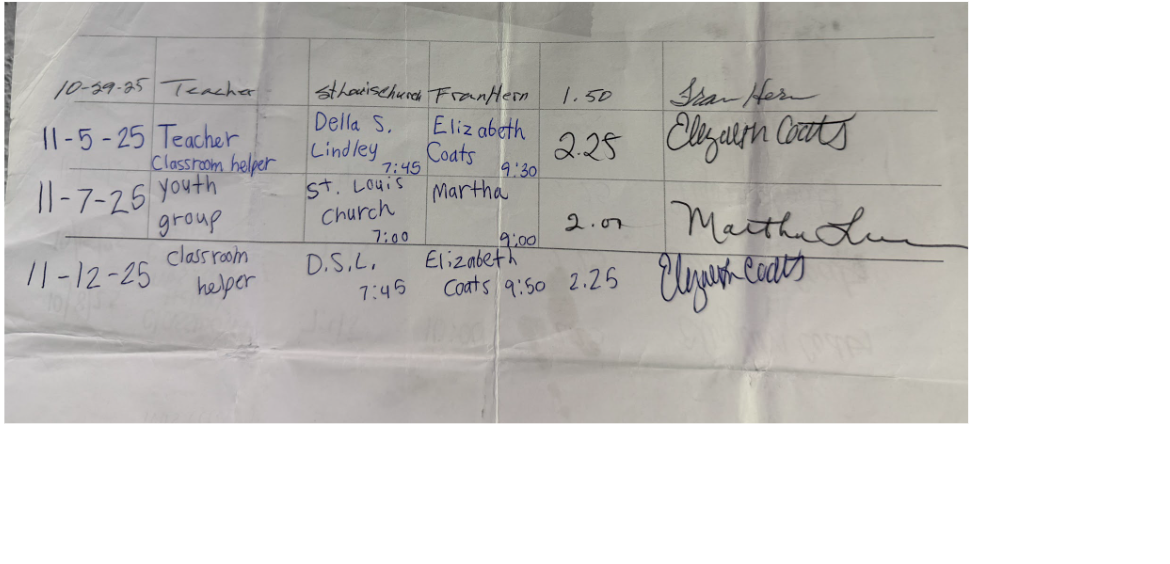 10-29-25 Teacher St Louis church Fran Hern 1.50 Fran Hern
11-5-25 Teacher Della S. Elizabeth 2.25 Elizabeth Coats
Classroom helper Lindley 7:45 Coats 9:30
11-7-25 youth St. Louis Martha
group Church 2.00 Martha
7:00 9:00
11-12-25 classroom D.S.L. Elizabeth 2.25 Elizabeth Coats
helper 7:45 Coats 9:50